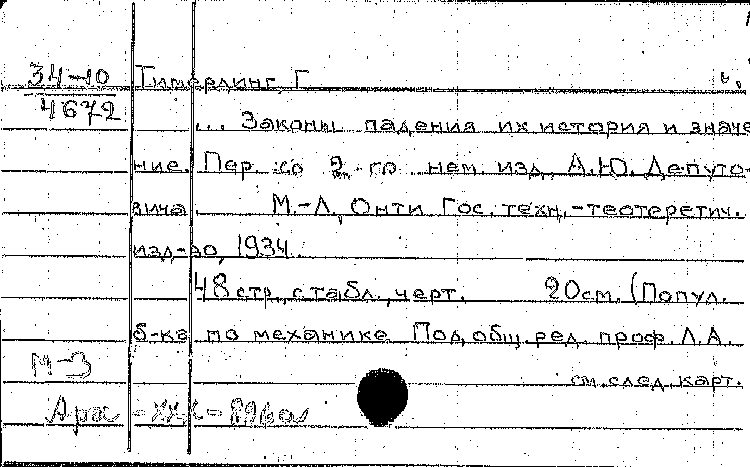 34-10 Тимерлинг Г
4672
... Законы падения их история и значе
ние. Пер. со 2-го нем. изд. А.Ю. Депуто-
вича. М.-Л, Онти Гос. техн.-теотеретич.
изд-во, 1934.
48 стр. с табл., черт. 20см. (Попул.
б-ка по механике Под общ. ред. проф. Л.А.
М-3
см. след. карт.
Арх -XXX- 8960л